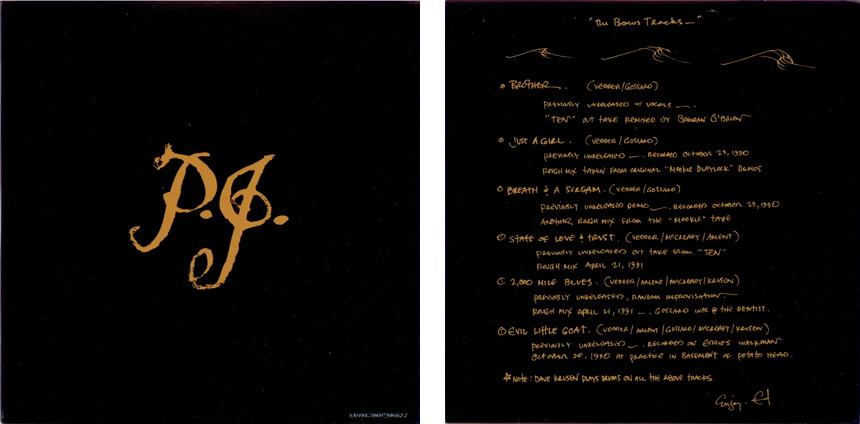 P.J.
"The Bonus Tracks—"
BROTHER. (VEDDER/GOSSARD)
PREVIOUSLY UNRELEASED W/ VOCALS —.
"TEN" OUT TAKE REMIXED BY BRENDAN O'BRIEN
JUST A GIRL. (VEDDER/GOSSARD)
PREVIOUSLY UNRELEASED —. RECORDED OCTOBER 23, 1990
ROUGH MIX TAKEN FROM ORIGINAL "MOOKIE BLAYLOCK" DEMOS
BREATH & A SCREAM. (VEDDER/GOSSARD)
PREVIOUSLY UNRELEASED DEMO —. RECORDED OCTOBER 23, 1990
ANOTHER ROUGH MIX FROM THE "MOOKIE" TAPE
STATE OF LOVE & TRUST. (VEDDER/MCCREADY/AMENT)
PREVIOUSLY UNRELEASED OUT TAKE FROM "TEN"
ROUGH MIX APRIL 21, 1991
2,000 MILE BLUES. (VEDDER/AMENT/MCCREADY/KRUSEN)
PREVIOUSLY UNRELEASED, RANDOM IMPROVISATION.
ROUGH MIX APRIL 21, 1991 —. GOSSARD WAS @ THE DENTIST.
EVIL LITTLE GOAT. (VEDDER/AMENT/GOSSARD/MCCREADY/KRUSEN)
PREVIOUSLY UNRELEASED —. RECORDED ON EDDIE'S WALKMAN
OCTOBER 20, 1990 AT PRACTICE IN BASEMENT OF POTATO HEAD.
☆NOTE: DAVE KRUSEN PLAYS DRUMS ON ALL THE ABOVE TRACKS
Enjoy. Ed